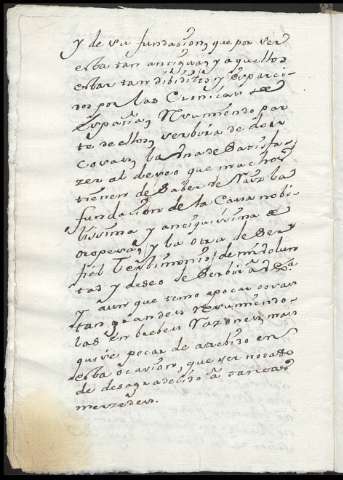 y de su fundacion, que por ser
esta tan antigua, y aquellos
estar tan dibididos y esparci
dos por las Cronicas de
España, Resumiendo par
te de ellos, serbira de dos
cosas, la una de Satisfa-
zer al deseo que muchos
tienen de Saber de Raiz la
fundacion de la Casa nobi
lissima y antiquissima de
oropesa, y la otra de Ser
fiel Testimonio, de mi volun
tad y deseo de Serbir
y aun que temo apocar cosas
tan grandes resumiendo
las en brebes Razones, mas
quise pecar de atrebido en
esta ocasion, que ser notado
de desagradecido a tantas
merzedes.